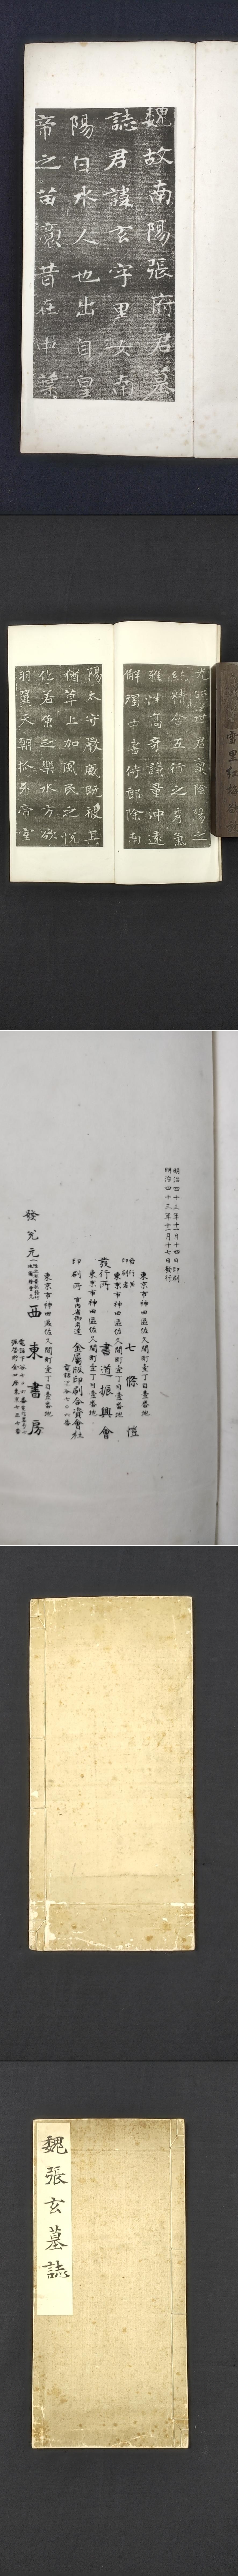 魏故南陽張府君墓
誌君諱玄字黑女南
陽白水人也出自皇
帝之苗裔昔在中葉
光照世君稟陰陽之
純精含五行之秀氣
雅性高奇識量沖遠
解褐中書侍郎除南
陽太守嚴威既被其
猶草上加風民之悅
化若魚之樂水方欲
羽翼天朝抓牙帝室
雪里红梅
明治四十三年十一月十四日印刷
明治四十三年十一月十七日發行
東京市神田區佐久間町壹丁目壹番地
七條愷
東京市神田區佐久間町壹丁目壹番地
發行所 書道振興會
東京市神田區佐久間町壹丁目壹番地
印刷所 金屬版印刷合資會社
東京市神田區佐久間町壹丁目壹番地
發兌元 西東書房
魏張玄墓誌